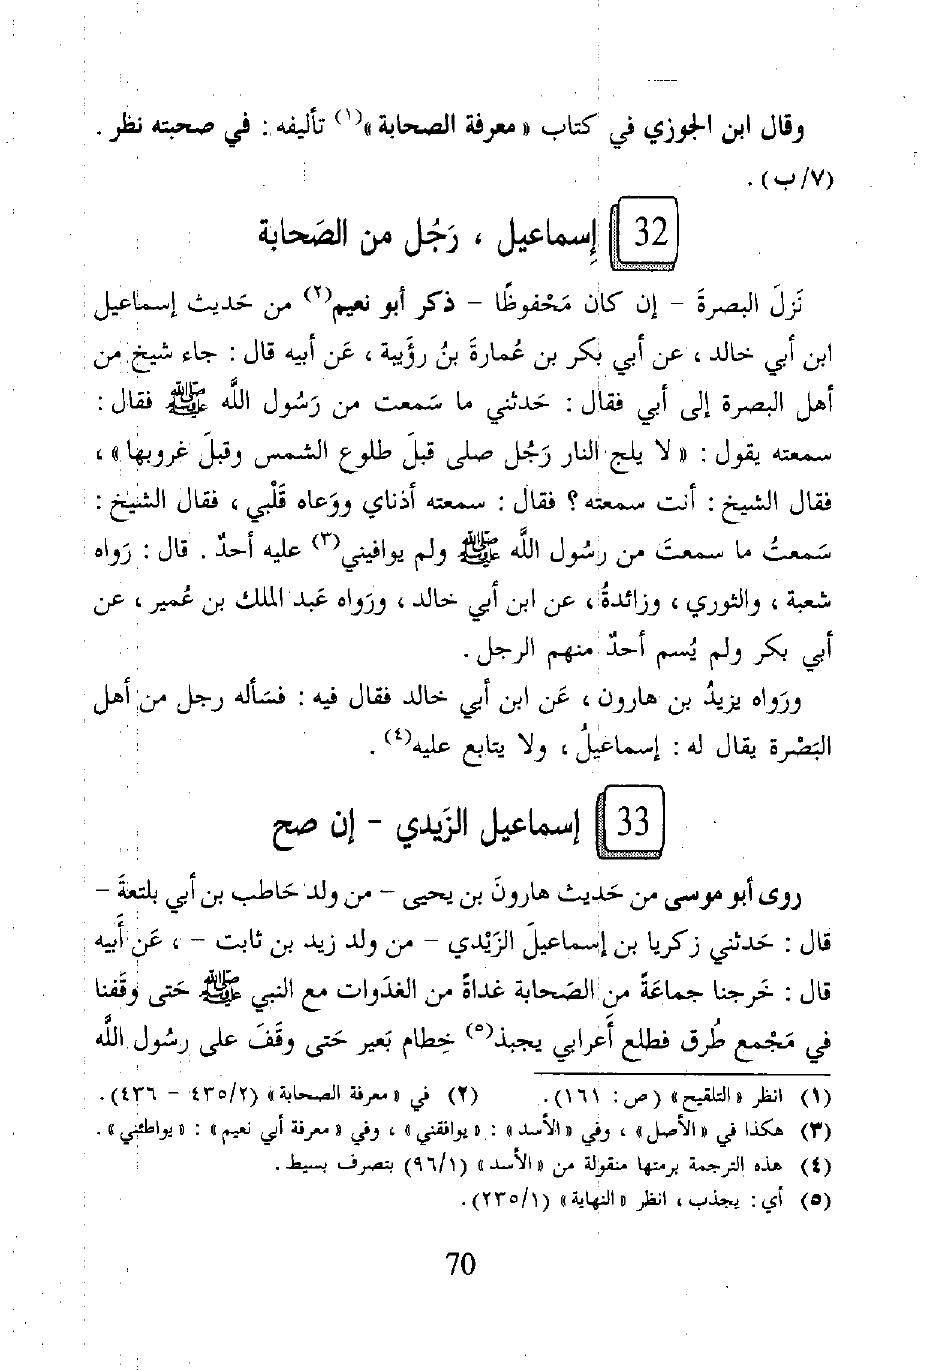 وقال ابن الجوزي في كتاب « معرفة الصحابة »(١) تأليفه : في صحبته نظر .
(٧/ ب) .
32 إِسماعيل ، رَجُل من الصَحابة
نَزلَ البصرةَ – إن كان مَحْفوظًا – ذكر أبو نعيم(٢) من حَديث إسماعيل
ابن أبي خالد ، عن أبي بَكر بن عُمارةَ بنُ رؤَيبة ، عَن أبيه قال : جاء شيخ من
أهل البصرة إلى أبي فقال : حَدثني ما سَمعت من رَسُول الله ﷺ فقال :
سمعته يقول : « لا يلج النار رَجُل صلى قبلَ طلوع الشمس وقبلَ غروبها » ،
فقال الشيخ : أنت سمعته ؟ فقال : سمعته أذناي ووَعاه قَلْبي ، فقال الشيْخ :
سَمعتُ ما سمعتَ من رسُول الله ﷺ ولم يوافيني(٣) عليه أحدٌ . قال : رَواه
شعبة ، والثوري ، وزائدةُ ، عن ابن أبي خالد ، ورَواه عَبد الملك بن عُمير ، عن
أبي بكر ولم يُسم أحدٌ منهم الرجل .
ورَواه يزيدُ بن هارون ، عَن ابن أبي خالد فقال فيه : فسَأله رجل من أهل
البَصْرة يقال له : إسماعيلُ ، ولا يتابع عليه(٤) .
33 إسماعيل الزَيدي – إن صح
روى أبو موسى من حَديث هارونَ بن يحيى – من ولد حَاطب بن أبي بلتعةَ –
قال : حَدثني زكريا بن إسماعيلَ الزَيْدي – من ولد زيد بن ثابت – ، عَن أَبيه
قال : خَرجنا جماعَةً من الصَحابة غداةً من الغدَوات مع النبي ﷺ حَتى وقَفنا
في مَجْمع طُرق فطلع أَعرابي يجبذ(٥) خِطام بَعير حَتى وقَفَ على رسُول الله
(١) انظر « التلقيح » (ص : ١٦١). (٢) في « معرفة الصحابة » (٢/ ٤٣٥ – ٤٣٦).
(٣) هكذا في «الأصل» ، وفي «الأسد» : «يوافقني» ، وفي «معرفة أبي نعيم» : «يواطئني».
(٤) هذه الترجمة برمتها منقولة من «الأسد» (١/ ٩٦) بتصرف بسيط .
(٥) أي : يجذب ، انظر «النهاية» (١/ ٢٣٥).
70